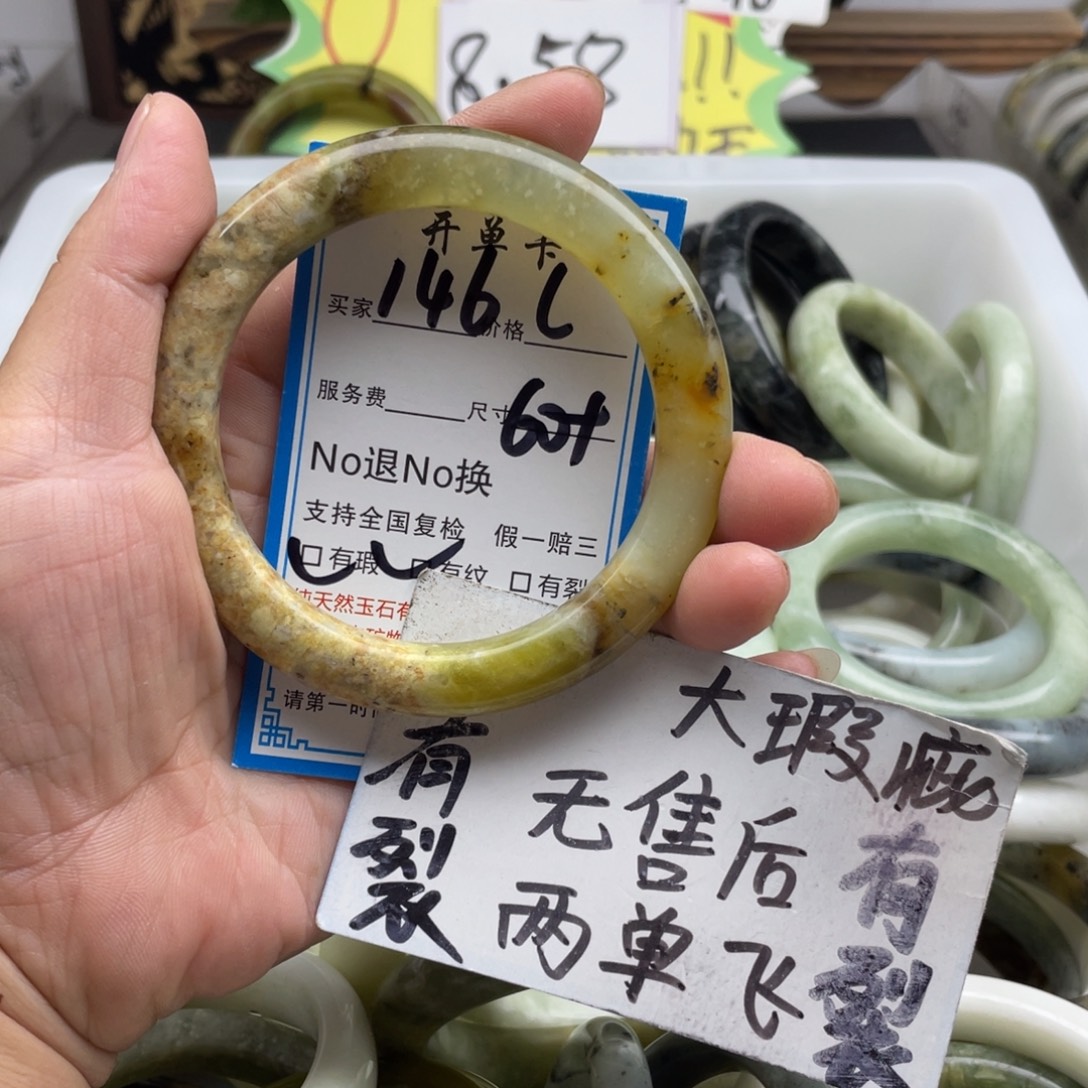 8.58
!!!
开单卡
买家146 价格L
服务费 尺寸60+
No退No换
支持全国复检 假一赔三
口有瑕 口有纹 口有裂
纯天然玉石有
矿物
请第一时
大瑕疵
有裂
无售后
有裂
两单飞